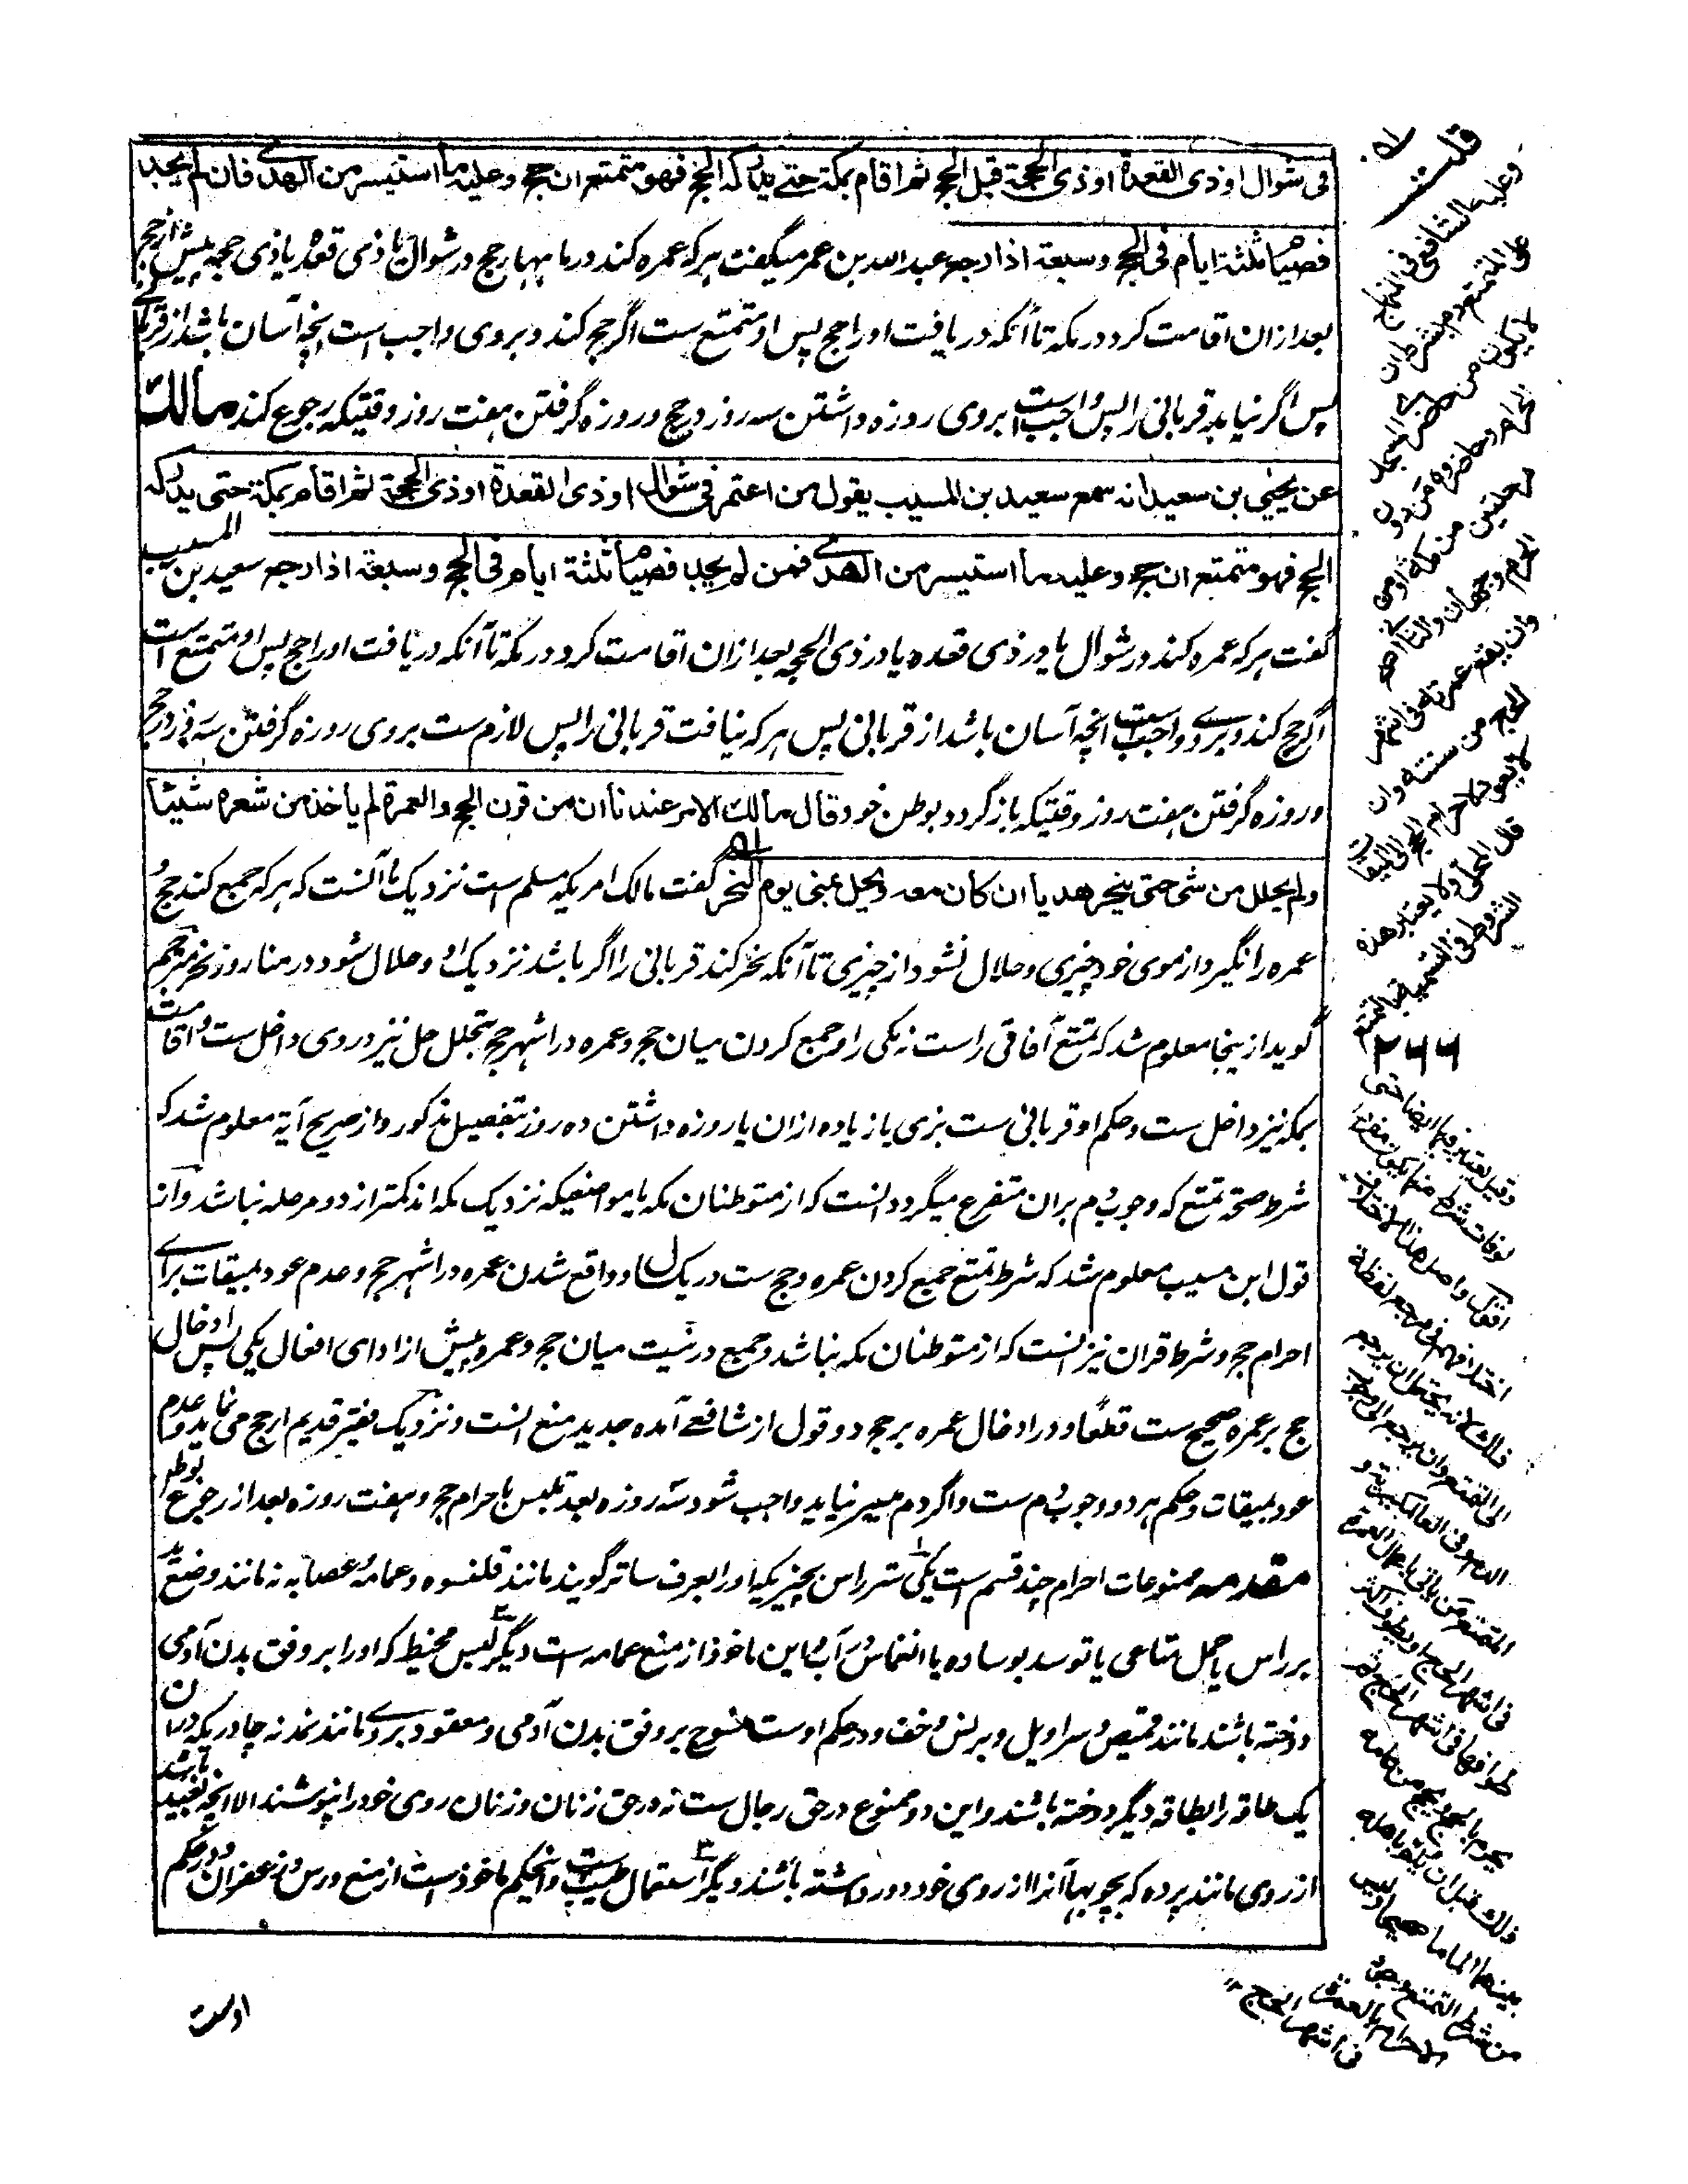 فی شوال او ذی القعدة او ذی الحجة قبل الحج ثم اقام بمكة حتے یدركه الحج فهو متمتع ان حج وعلیه ما استیسر من الهدے فان لم یجد
فصیام ثلثة ایام فی الحج وسبعة اذا رجع عبد الله بن عمر میگفت ہر کہ عمرہ کند در ماہہای حج در شوال یا ذی قعدہ یا ذی حجہ پیش از حج
بعد ازان اقامت کرد در مکہ تا آنکہ دریافت اورا حج پس او متمتع ست اگر حج کند و بروی واجب ست آنچہ آسان باشد از قربانی
پس اگر نیابد قربانی را پس واجب است بروی روزہ داشتن سہ روز در حج و روزہ گرفتن ہفت روز وقتیکہ رجوع کند مالك
عن یحیی بن سعید انه سمع سعید بن المسیب یقول من اعتمر فی شوال او ذی القعدة او ذی الحجة ثم اقام بمكة حتی یدركه
الحج فهو متمتع ان حج وعلیه ما استیسر من الهدے فمن لم یجد فصیام ثلثة ایام فی الحج وسبعة اذا رجع سعید بن المسیب
گفت ہر کہ عمرہ کند در شوال یا در ذی قعدہ یا در ذی الحجہ بعد ازان اقامت کرد در مکہ تا آنکہ دریافت اورا حج پس او متمتع است
اگر حج کند و بروے واجب است آنچہ آسان باشد از قربانی پس ہر کہ نیافت قربانی را پس لازم ست بروی روزہ گرفتن سہ روز در حج
و روزہ گرفتن ہفت روز وقتیکہ باز گردد بوطن خود قال مالك الامر عندنا ان من قرن الحج والعمرة لم یاخذ من شعره شیئا
ولم یحلل من شی حتی ینحر هدیا ان كان معه ویحل بمنی یوم النحر گفت مالک امریکہ مسلم ست نزدیک ما آنست کہ ہر کہ جمع کند حج و
عمرہ را نگیرد از موی خود چیزی و حلال نشود از چیزی تا آنکہ نحر کند قربانی را اگر باشد نزدیک او و حلال شود در منا روز نحر مترجم
گوید ازینجا معلوم شد کہ تمتع آفاقی راست نہ مکی را و جمع کردن میان حج و عمرہ در اشہر حج بتخلل حل نیز در وی داخل ست و اقامت
بمکہ نیز داخل ست و حکم او قربانی ست بزی یا زیادہ ازان یا روزہ داشتن دہ روز بتفصیل مذکور و از صریح آیة معلوم شد کہ
شرط صحة تمتع کہ وجوب دم بران متفرع میگردد آنست کہ از متوطنان مکہ یا مواضعیکہ نزدیک مکہ اند کمتر از دو مرحلہ نباشد و از
قول ابن مسیب معلوم شد کہ شرط تمتع جمع کردن عمرہ و حج ست در یک سال و واقع شدن عمرہ در اشہر حج و عدم عود بمیقات براے
احرام حج و شرط قران نیز آنست کہ از متوطنان مکہ نباشد و جمع در نیت میان حج و عمرہ پیش از ادای افعال یکی پس ادخال
حج بر عمرہ صحیح ست قطعًا و در ادخال عمرہ بر حج دو قول از شافعے آمدہ جدید منع آنست و نزدیک فقیر قدیم ارجح می نماید و عدم
عود بمیقات و حکم ہر دو وجوب دم ست و اگر دم میسر نیاید واجب شود سہ روزہ بعد تلبس باحرام حج و ہفت روزہ بعد از رجوع بوطن
مقدمہ ممنوعات احرام چند قسم است یکی ستر راس بچیزیکہ اورا بعرف ساتر گویند مانند قلنسوہ و عمامہ و عصابہ نہ مانند وضع ید
بر راس یا حمل متاعی یا توسد بوسادہ یا انغماس در آب و این ماخوذ از منع عمامہ است دیگر لبس مخیط کہ اورا بر وفق بدن آدمی
دوختہ باشند مانند قمیص و سراویل و برنس و خف و در حکم اوست منسوج بر وفق بدن آدمی و معقود بروے مانند نمد نہ چادریکہ دران
یک طاقہ را بطاقہ دیگر دوختہ باشند و این دو ممنوع در حق رجال ست نہ در حق زنان و زنان روی خود را نپوشند الا آنچہ بعید باشد
از روی مانند پردہ کہ بچوبہا آنرا از روی خود دور داشتہ باشند دیگر استعمال طیب است و اینحکم ماخوذ ست از منع ورس و زعفران و در حکم
اوست
قلت
وعلیه الشافعی فی المنهاج
علی المتمتع دم بشرط ان
لا یكون من حاضری المسجد
الحرام وحاضروه من دون
مرحلتین من مكة او من
الحرم
وان یقع عمرته فی اشهر
الحج من سنته وان
لا یعود لاحرام الحج الی المیقات
قال المحلی ولا یعتبر هذه
الشروط فی التسمیة
۲۶۶